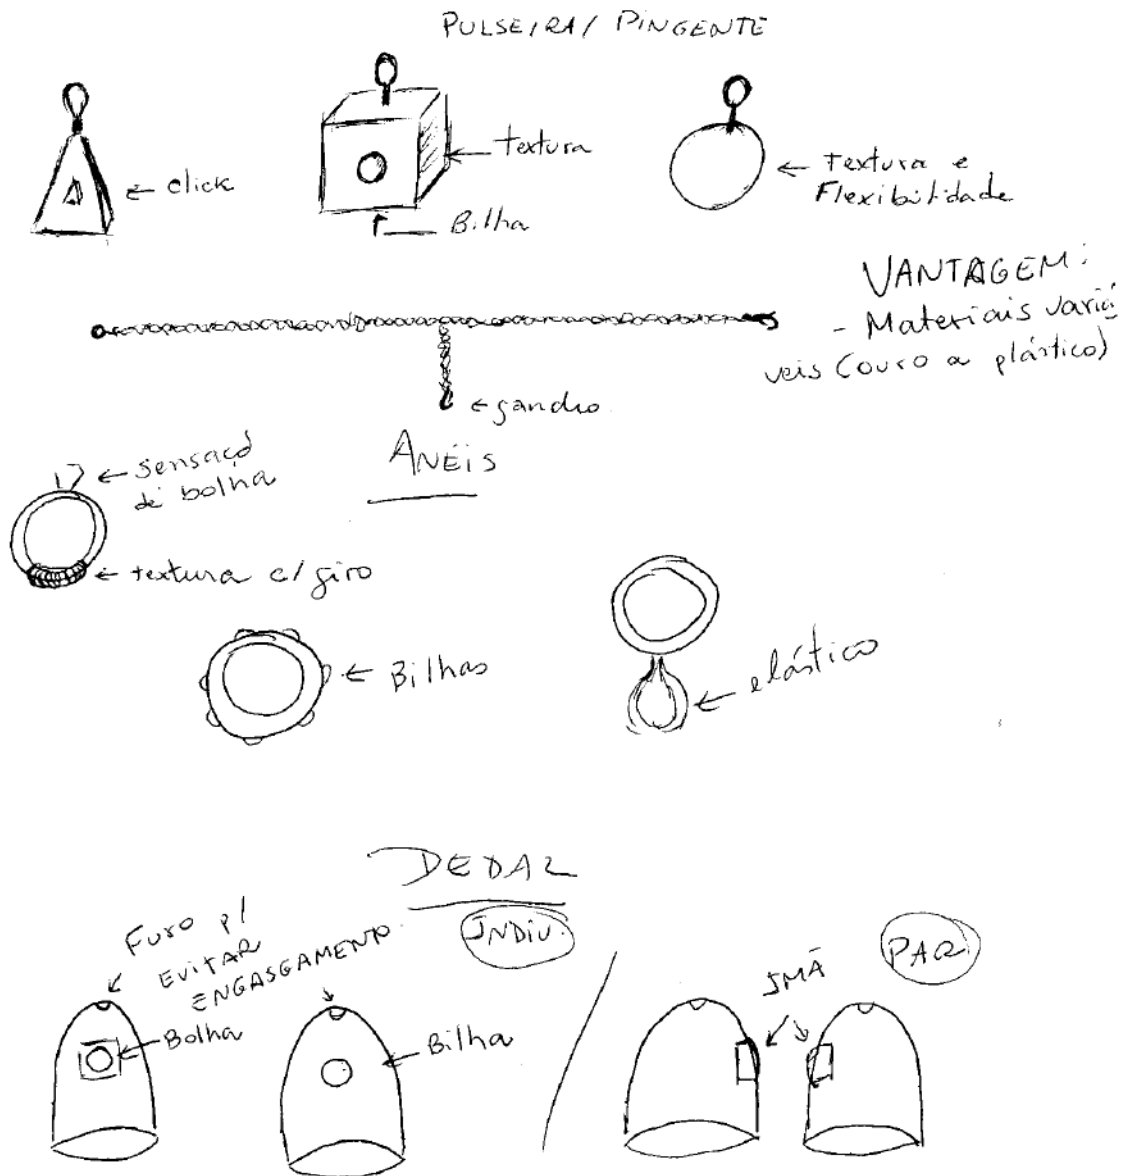 PULSEIRA/ PINGENTE
← click
← textura
Bilha
← Textura e
Flexibilidade
VANTAGEM:
- Materiais variá
veis (ouro a plástico)
← gancho
ANÉIS
← sensação
de bolha
← textura c/ giro
← Bilhas
← elástico
DEDAL
INDIV.
Furo p/
EVITAR
ENGASGAMENTO
Bolha
Bilha
IMÃ
PAR